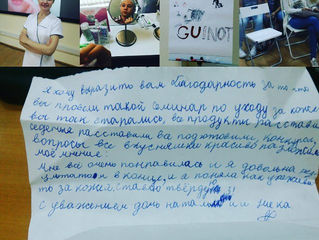 GUINOT
Я хочу выразить вам благодарность за то что
вы провели такой семинар по уходу за кожей
вы так старались, все продукты расставили
седечна расставили все подготовили, конкурсы,
вопросы все вкусняшки красиво разложили
моё мнение:
Мне все очень понравилось и я довольна резу
льтатом в конце, и я поняла как ухаживать
то за кожей. Ставлю твёрдую 5!
С уважением дочь наталии и ника